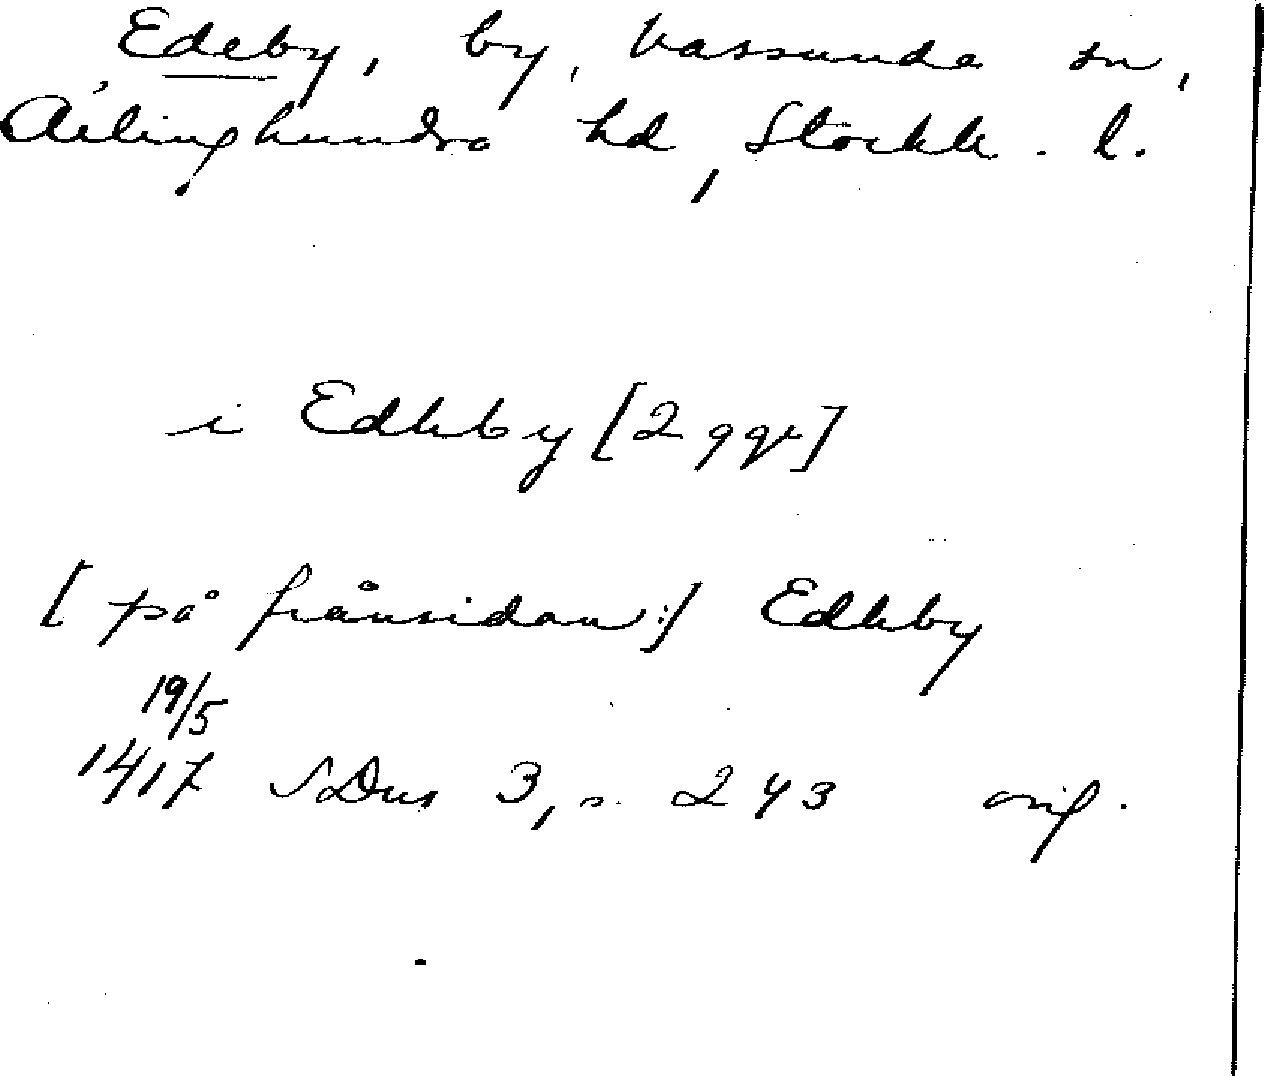 Edeby, by, Vassunda sn,
Ærlinghundra hd, Stockh. l.
i Edhby [2 ggr]
[på frånsidan:] Edhby
19/5
1417 SDns 3, s. 243 orig.